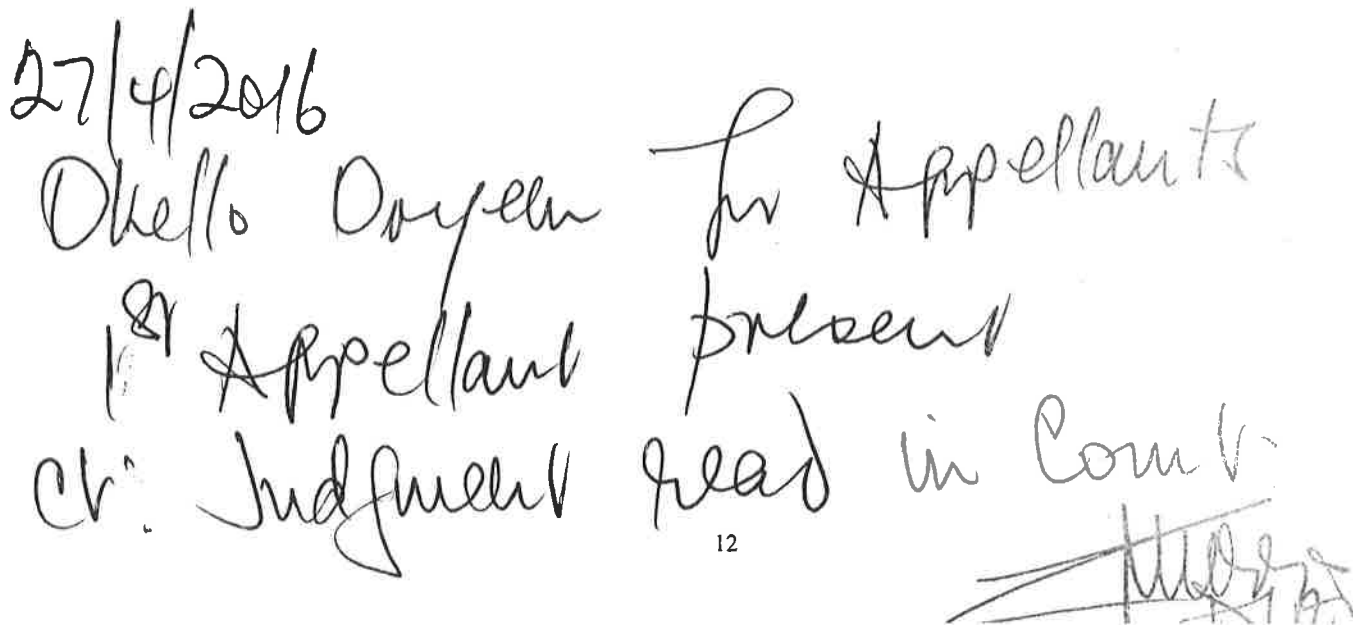 27/4/2016
Okello Oryem for Appellants
1st Appellant present
Ct: Judgment read in Court.
12